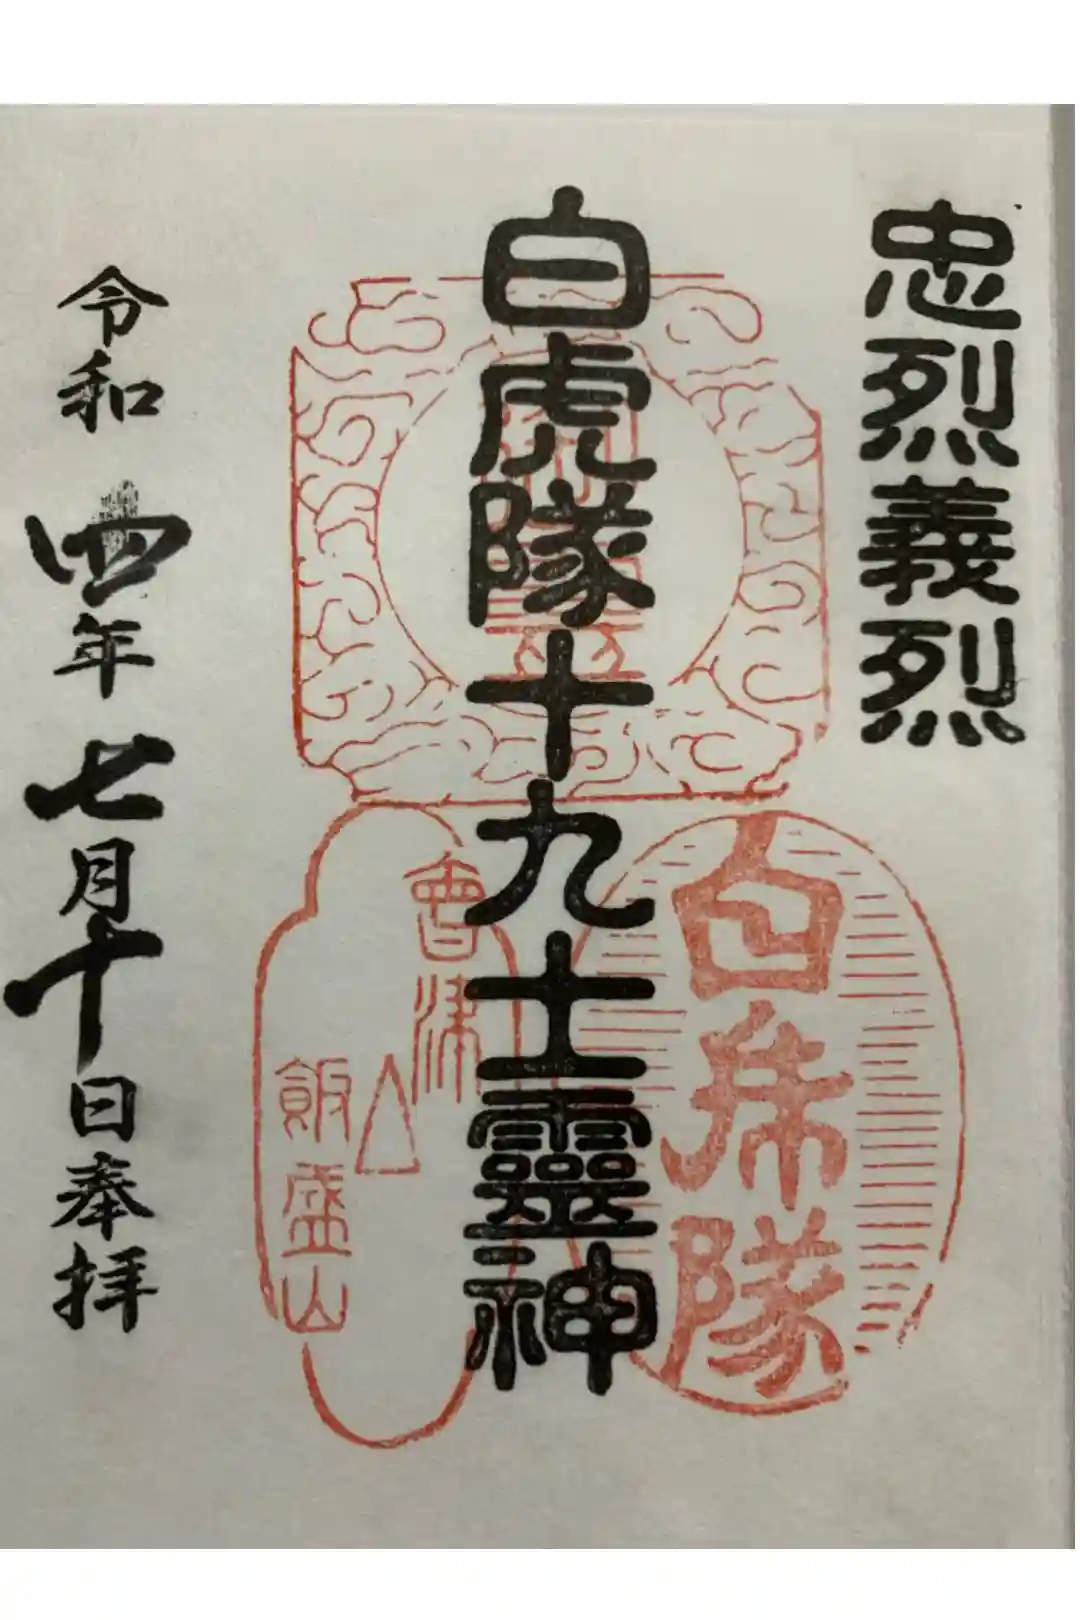 忠烈義烈
白虎隊十九士靈神
白虎隊
會津
飯盛山
令和四年七月十日奉拝